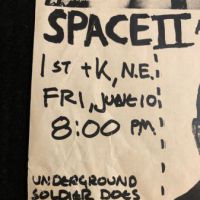 SPACE II
1ST + K, N.E.
FRI, JUNE 10,
8:00 PM
UNDERGROUND
SOLDIER DOES